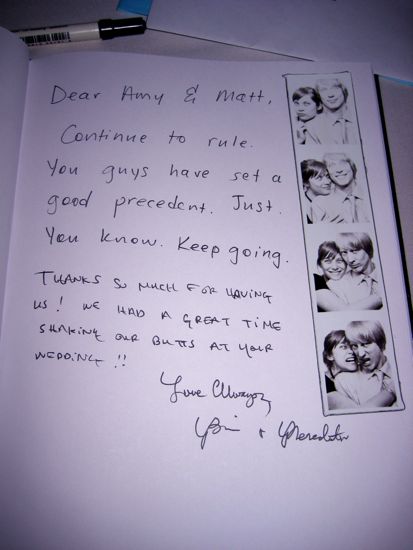 Dear Amy & Matt,
Continue to rule.
You guys have set a
good precedent. Just.
You know. Keep going.
THANKS SO MUCH FOR HAVING
US! WE HAD A GREAT TIME
SHAKING OUR BUTTS AT YOUR
WEDDING!!
Love Always,
+ Meredith